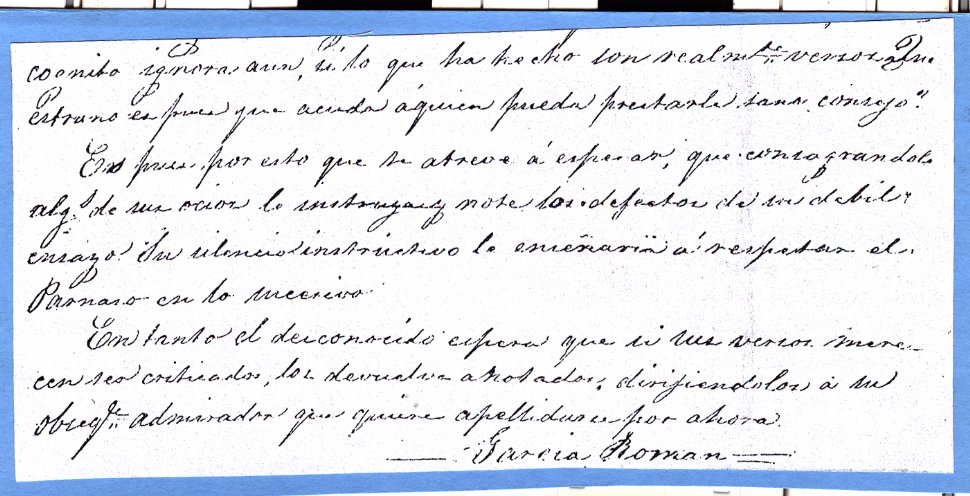 cocnito ignora aun, si lo que ha hecho son realmte versos. Que
estraño es pues que acuda á quien pueda prestarle sano consejo?
Es pues por esto que se atreve á esperar, que consagrandole
algs. de sus ocios le instruya y note los defectos de su debil
ensayo. Su silencio instructivo le enseñaria á respetar el
Parnaso en lo succesivo.
Entanto el desconocido espera que si sus versos mere-
cen ser criticados, los devuelva anotados, dirijiendolos á su
obseqte admirador que quiere apellidarse por ahora
Garcia Roman